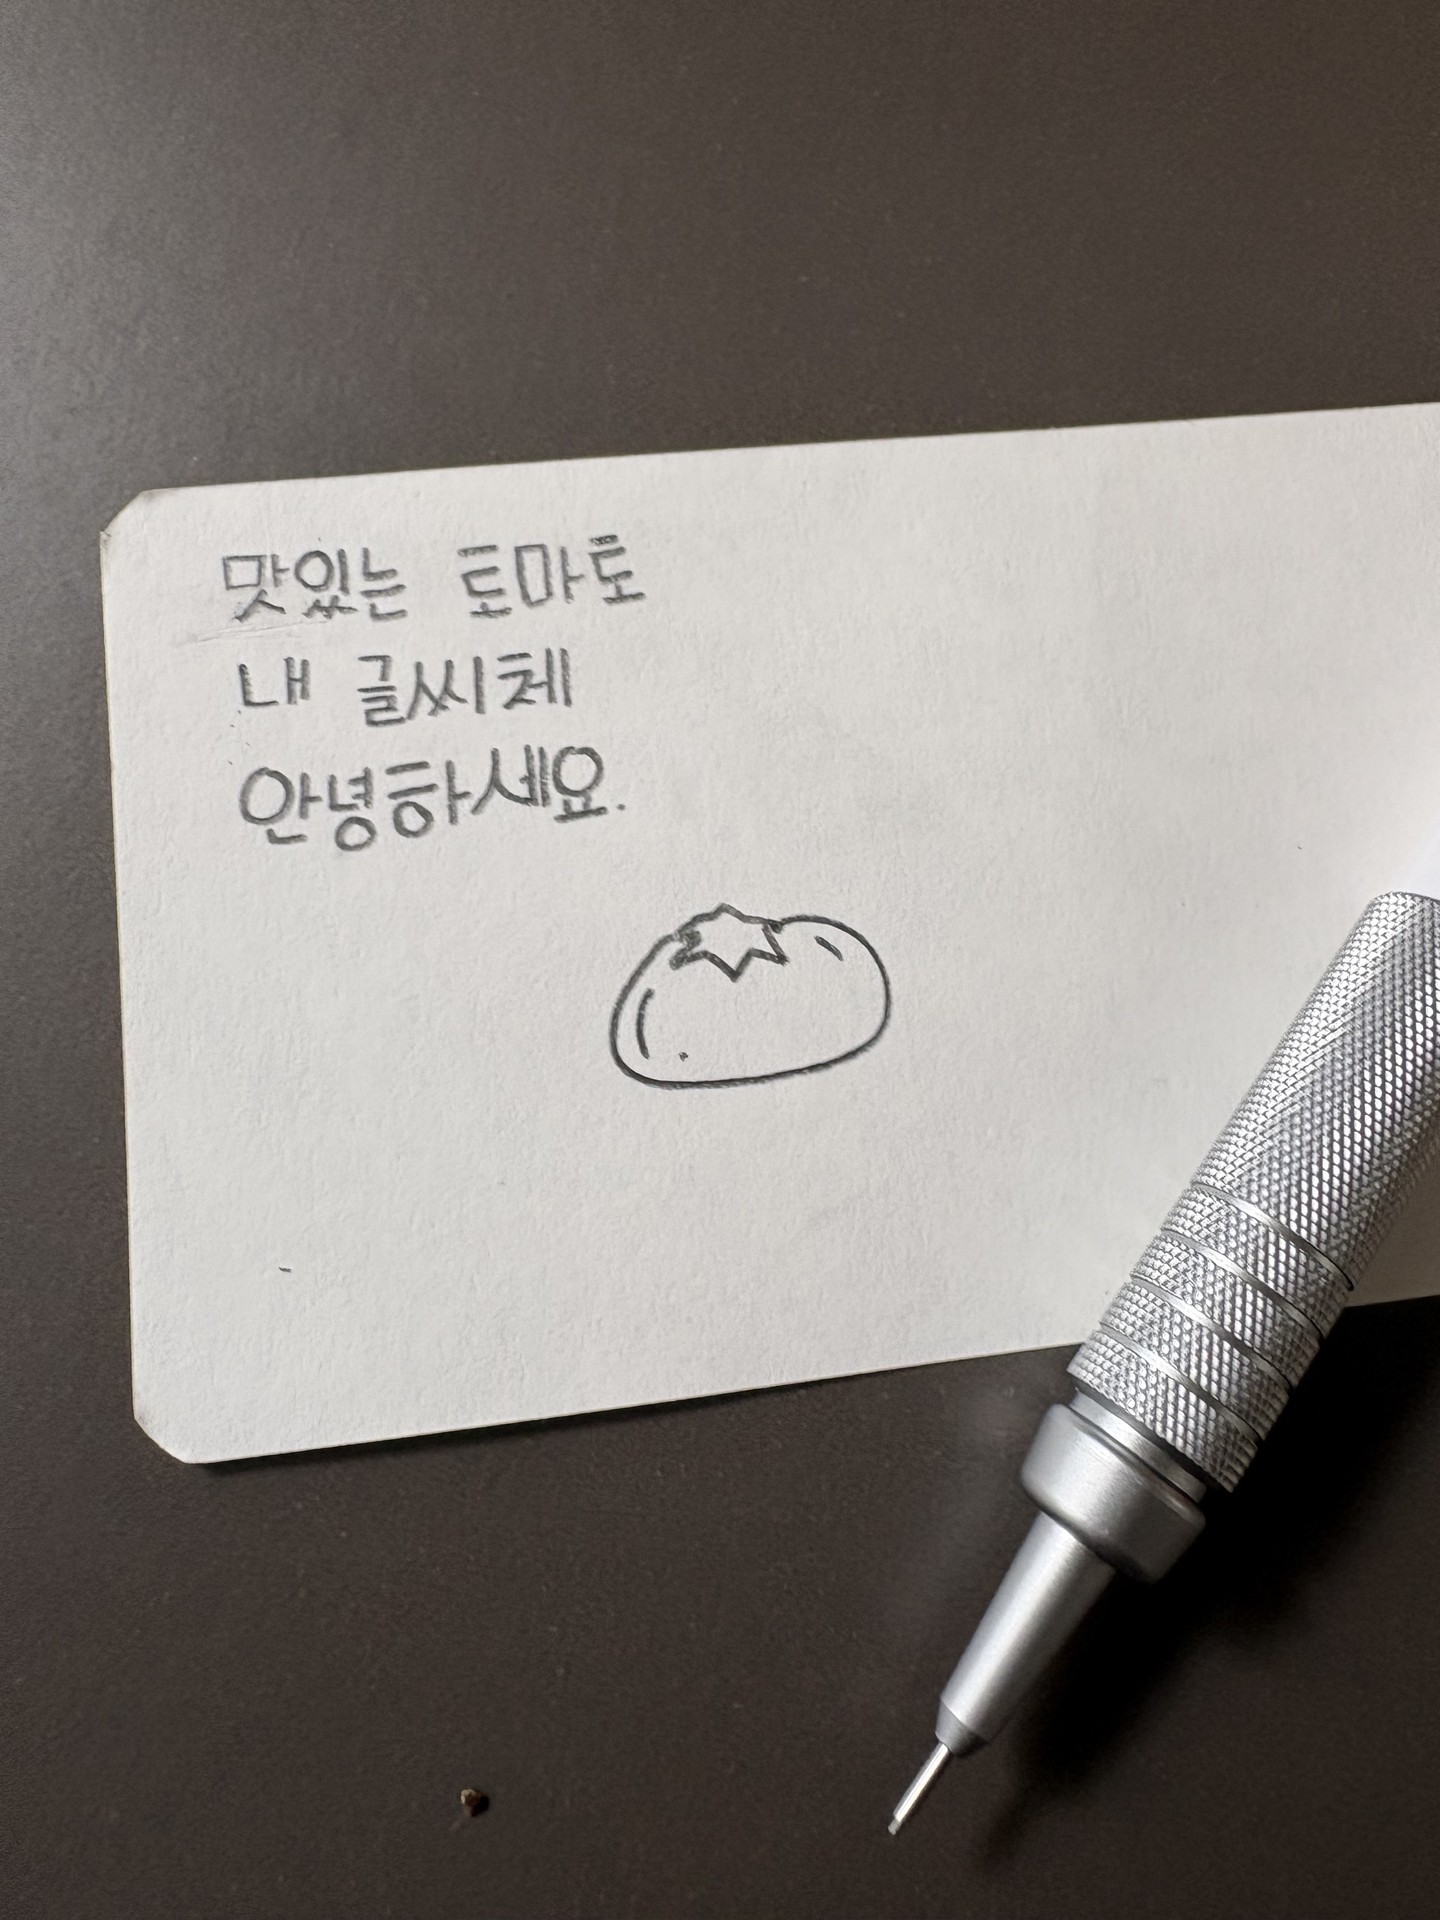 맛있는 토마토
내 글씨체
안녕하세요.